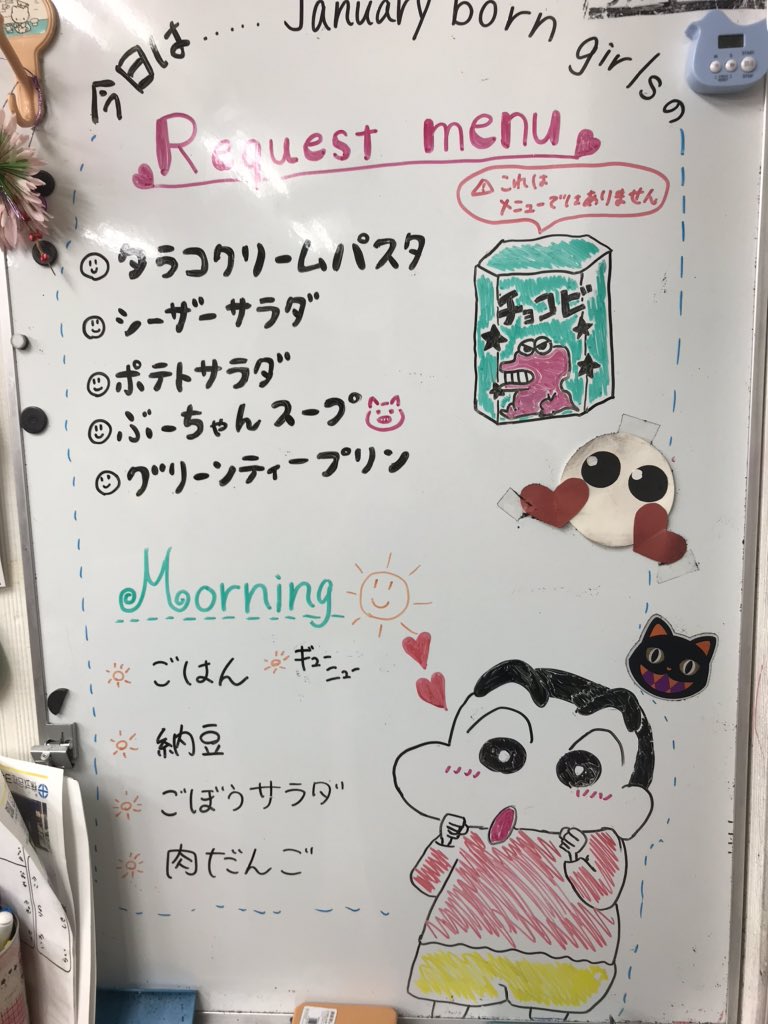 今日は..... January born girlsの
Request menu
⚠ これは
メニューではありません
タラコクリームパスタ
シーザーサラダ
ポテトサラダ
ぶーちゃんスープ
グリーンティープリン
チョコビ
Morning
ごはん ギューニュー
納豆
ごぼうサラダ
肉だんご